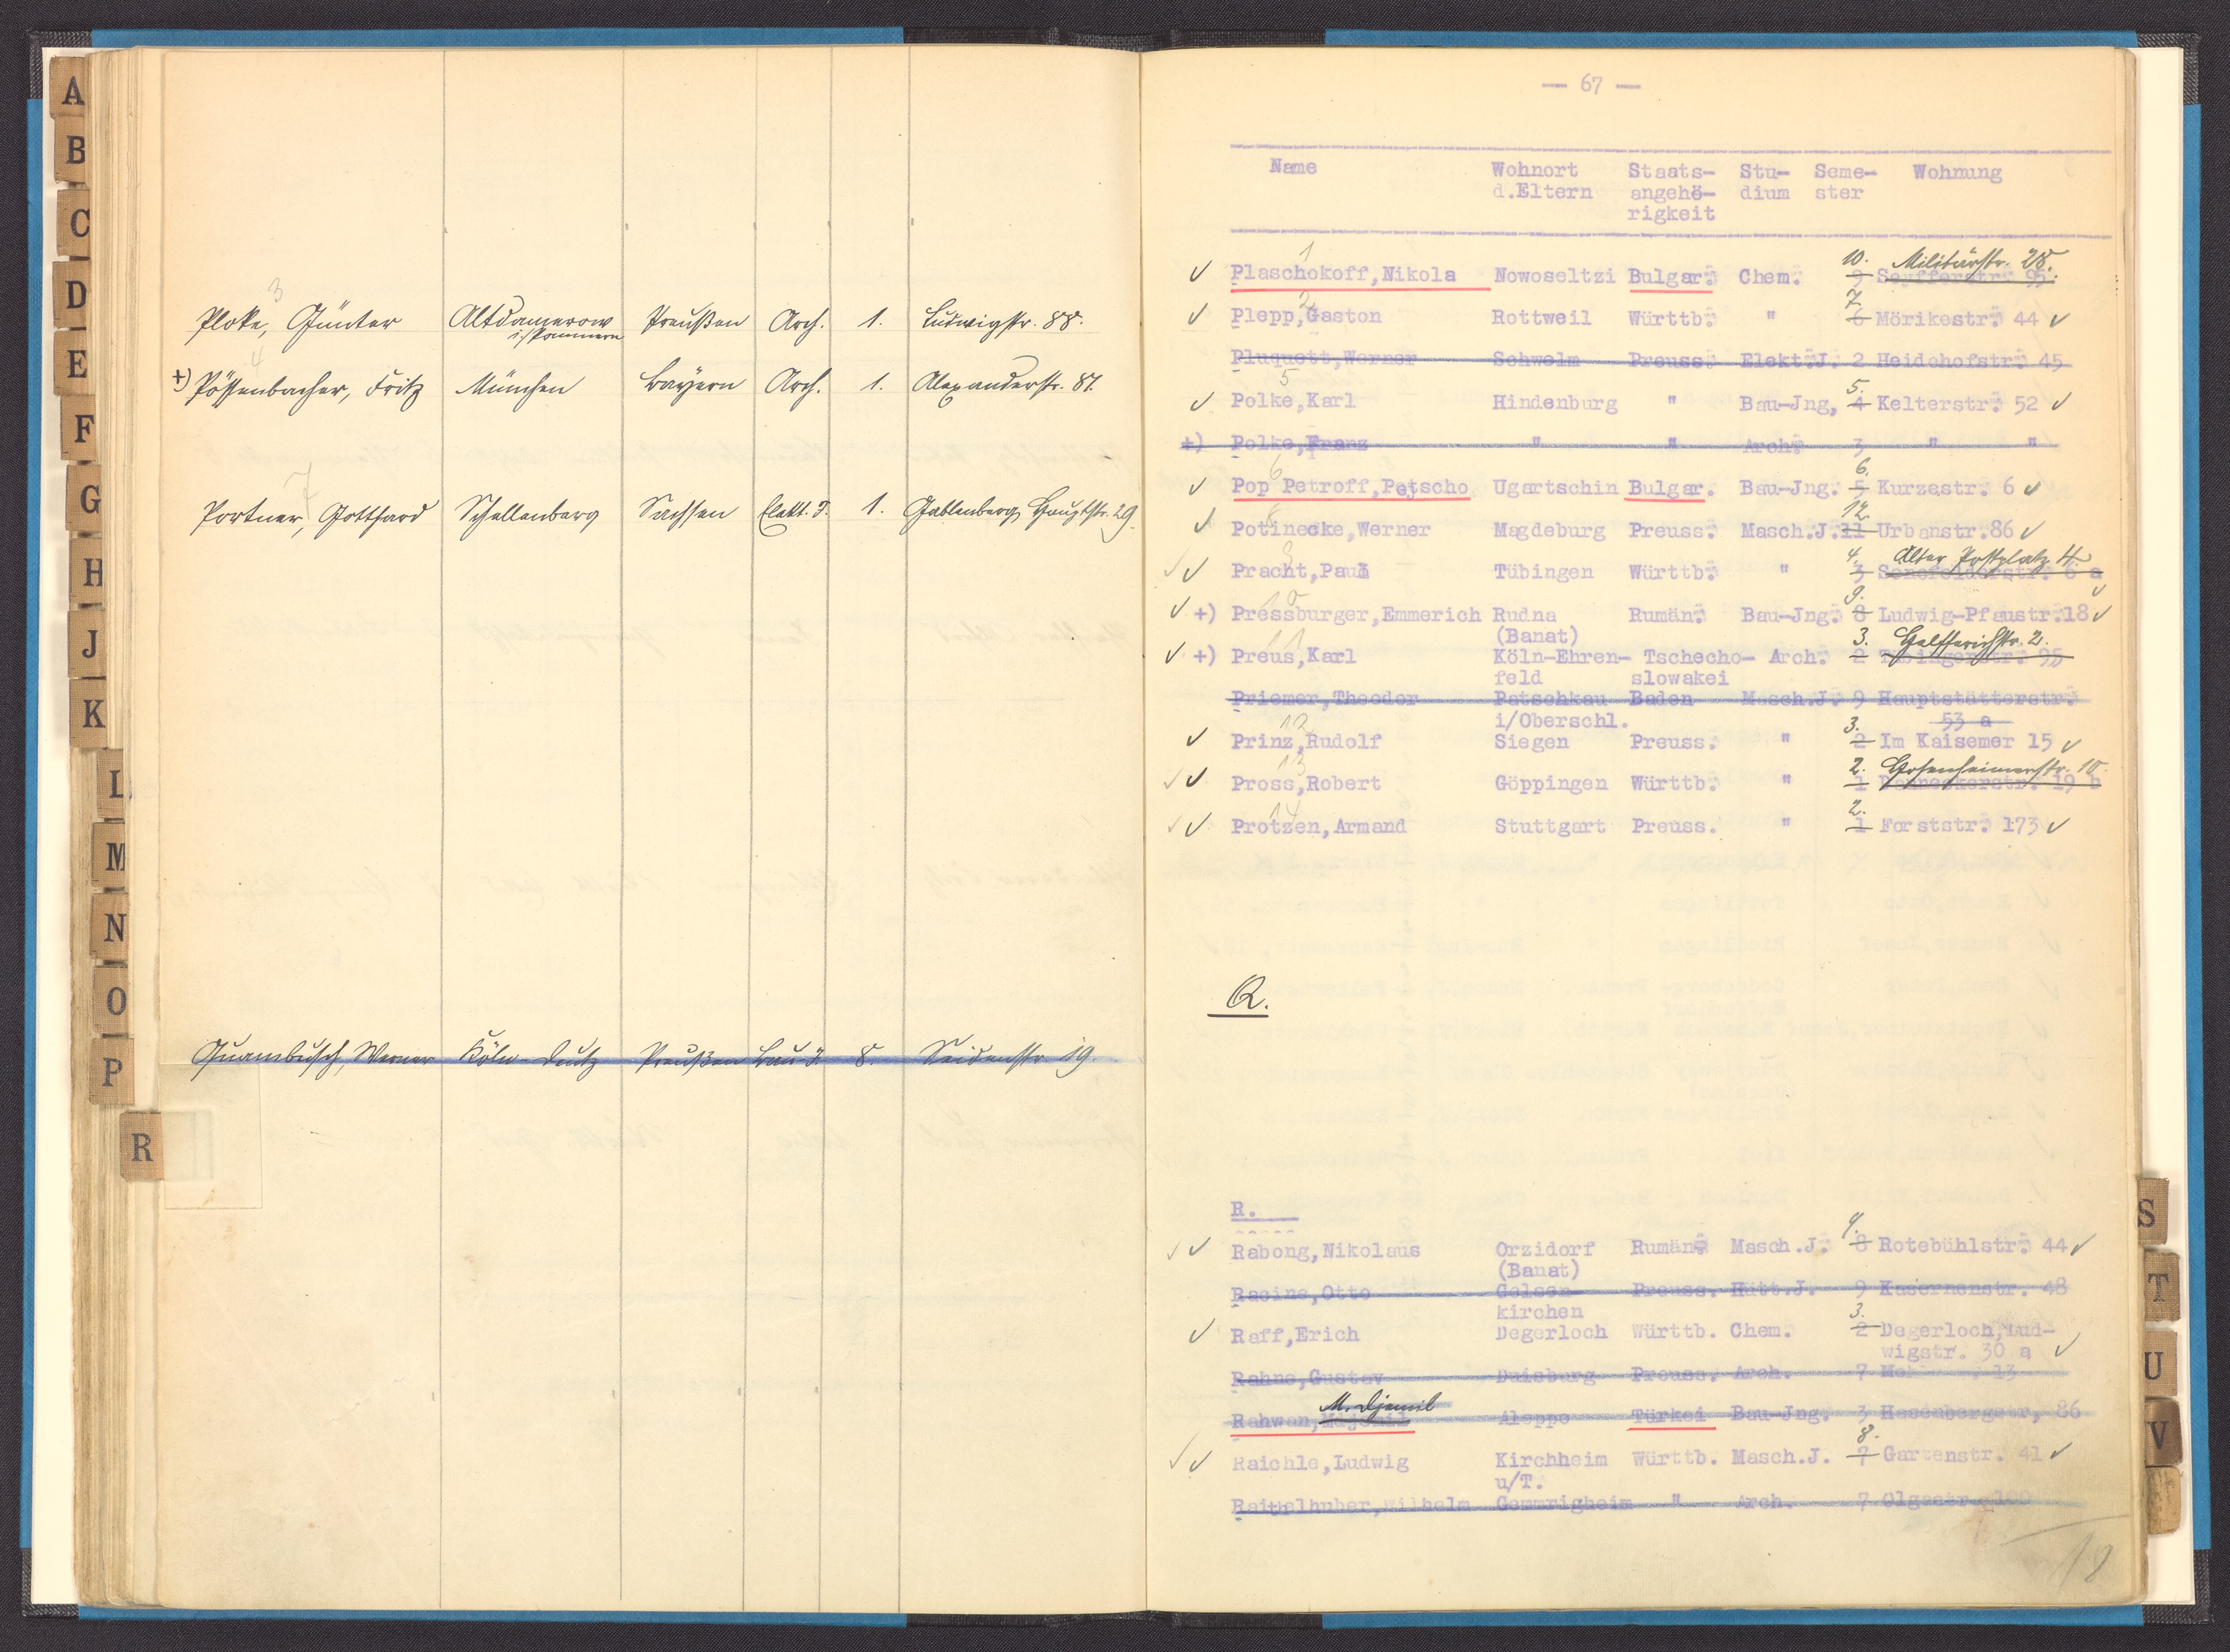 A
B
C
D
E
F
G
H
J
K
L
M
N
O
P
R
3
Ploke, Günter Altdamerow i./Pommern Preußen Arch. 1. Ludwigstr. 88.
4
+) Pössenbacher, Fritz München Bayern Arch. 1. Alexanderstr. 81.
7
Portner, Gotthard Schellenberg Sachsen Elekt. J. 1. Gablenberg, Hauptstr. 29.
Quambusch, Werner Köln-Deutz Preußen Bau J. 8. Seidenstr. 19.
— 67 —
Name Wohnort Staats- Stu- Seme- Wohnung
d.Eltern angehö- dium ster
rigkeit
1 10. Militärstr. 28.
✓ Plaschokoff,Nikola Nowoseltzi Bulgar. Chem. 9 Seyfferstr. 95
2 7.
✓ Plepp,Gaston Rottweil Württb. " 6 Mörikestr. 44 ✓
Pluquett,Werner Schwelm Preuss. Elekt.J. 2 Heidehofstr. 45
5 5.
✓ Polke,Karl Hindenburg " Bau-Jng, 4 Kelterstr. 52 ✓
+) Polke,Franz " " Arch. 3 " "
6 6.
✓ Pop Petroff,Petscho Ugartschin Bulgar. Bau-Jng. 5 Kurzestr. 6 ✓
8 12.
✓ Potinecke,Werner Magdeburg Preuss. Masch.J. 11 Urbanstr.86 ✓
9 4. Alter Postplatz 4.
✓ ✓ Pracht,Paul Tübingen Württb. " 3 Senefelderstr. 6 a
10 9.
✓ +) Pressburger,Emmerich Rudna Rumän. Bau-Jng. 8 Ludwig-Pfaustr.18 ✓
(Banat)
11 3. Helfferichstr. 2.
✓ +) Preus,Karl Köln-Ehren- Tschecho- Arch. 2 Tübingerstr. 95
feld slowakei
Priemer,Theodor Patschkau Baden Masch.J. 9 Hauptstätterstr.
i/Oberschl. 53 a
12 3.
✓ Prinz,Rudolf Siegen Preuss. " 2 Im Kaisemer 15 ✓
13 2. 10.
✓ ✓ Pross,Robert Göppingen Württb. " 1 Danneckerstr. 19 b
14 2.
✓ ✓ Protzen,Armand Stuttgart Preuss. " 1 Forststr. 173 ✓
Q.
R.
✓ ✓ Rabong,Nikolaus Orzidorf Rumän. Masch.J. 8 Rotebühlstr. 44 ✓
(Banat)
Racine,Otto Gelsen- Preuss. Hütt.J. 9 Kasernenstr. 48
kirchen
3.
✓ Raff,Erich Degerloch Württb. Chem. 2 Degerloch,Lud-
wigstr. 30 a ✓
Rahne,Gustav Duisburg Preuss. Arch. 7 13
M. Djemil
Rahwan, Aleppo Türkei Bau-Jng. 3 Hasenbergstr, 86
8.
✓ ✓ Raichle,Ludwig Kirchheim Württb. Masch.J. 7 Gartenstr. 41 ✓
u/T.
Raithelhuber,Wilhelm Gemmrigheim " Arch. 7 Olgastr. 100
S
T
U
V